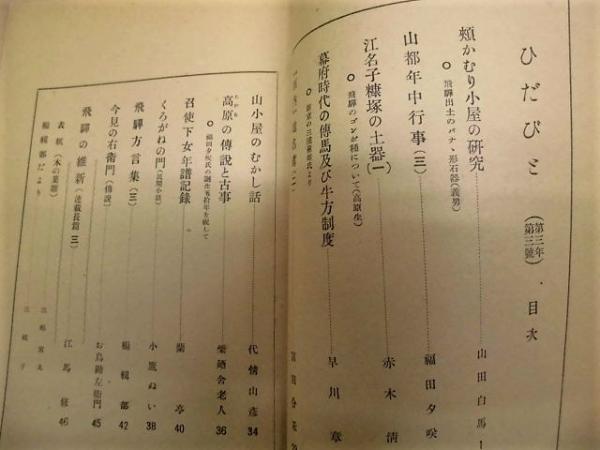 ひだびと（第三年第三號）目次
頰かむり小屋の研究 山田白馬 1
○飛驒出土のバナヽ形石器(義男)
山都年中行事（三） 福田夕咲
江名子糠塚の土器（一） 赤木淸
○飛驒のゴンボ種について(高原生)
幕府時代の傳馬及び牛方制度 早川章
山小屋のむかし話 代情山彥 34
高原の傳說と古事 柴廼舍老人 36
○福田夕咲氏の誕生五拾年を祝して
召使下女年譜記錄 蘭亭 40
くろがねの門 小鷹ぬい 38
飛驒方言集（三） 編輯部 42
今見の右衞門（傳說） お鳥勘左衞門 45
飛驒の維新（連載長篇三） 江馬修 46
表紙
編輯部だより